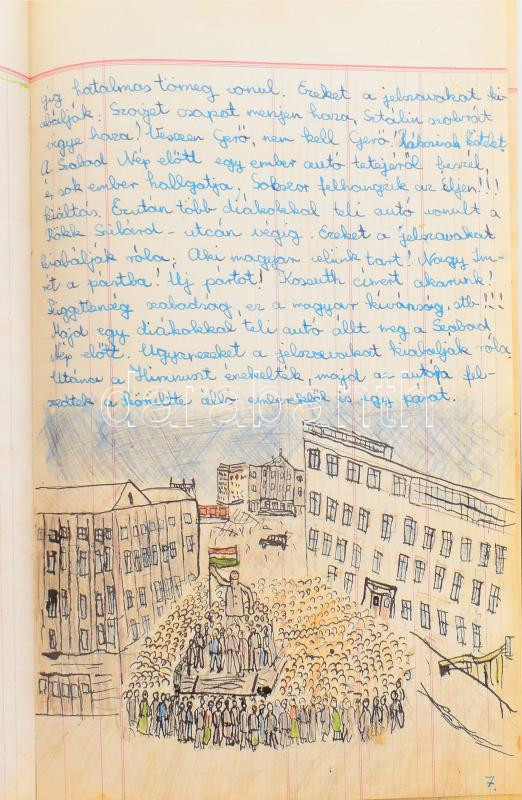 gig hatalmas tömeg vonul. Ezeket a jelszavakat ki-
abálják: Szovjet csapat menjen haza, Sztálin szobrát
vigye haza! Vesszen Gerő, nem kell Gerő! Rákosinak kötelet.
A Szabad Nép előtt egy ember autó tetejéről beszél,
s sok ember hallgatja. Sokszor felhangzik az Éljen!!!
kiáltás. Ezután több diákokkal teli autó vonult a
Rökk Szilárd-utcán végig. Ezeket a jelszavakat
kiabálják róla: Aki magyar velünk tart! Nagy Im-
rét a pártba! Új pártot! Kossuth címert akarunk!
Függetlenség szabadság, ez a magyar kívánság stb!!!
Majd egy diákokkal teli autó állt meg a Szabad
Nép előtt. Ugyanezeket a jelszavakat kiabálják róla.
Utána a Himnuszt énekelték, majd az autóra fel-
szedtek a körülötte álló emberekből is egy párat.
darabanth
7.